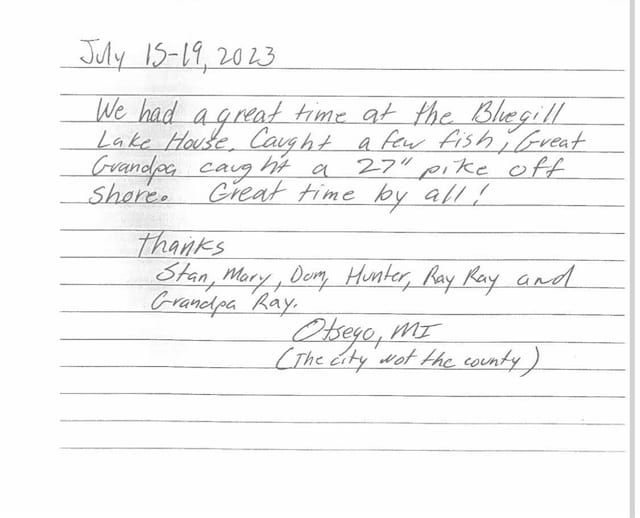 July 15-19, 2023
We had a great time at the Bluegill
Lake House. Caught a few fish, Great
Grandpa caught a 27" pike off
Shore. Great time by all!
Thanks
Stan, Mary, Dom, Hunter, Ray Ray and
Grandpa Ray.
Otsego, MI
(The city not the county)